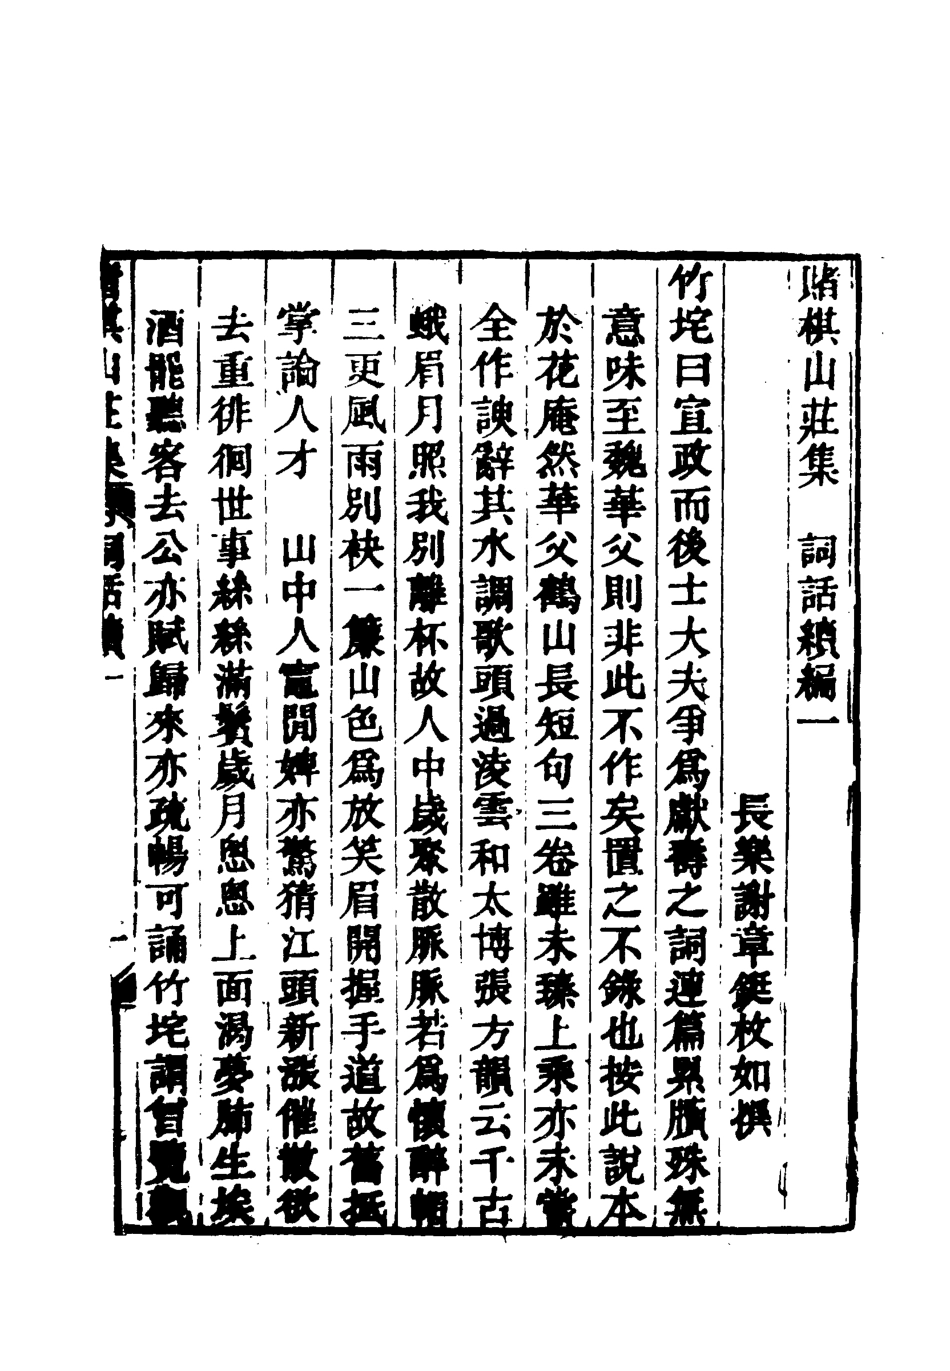 賭棋山莊集　詞話續編一
長樂謝章鋌枚如撰
竹垞曰宣政而後士大夫爭爲獻壽之詞連篇累牘殊無
意味至魏華父則非此不作矣置之不錄也按此說本
於花庵然華父鶴山長短句三卷雖未臻上乘亦未嘗
全作諛辭其水調歌頭過淩雲和太博張方韻云千古
蛾眉月照我別離杯故人中歲聚散脈脈若爲懷醉帽
三更風雨別袂一簾山色爲放笑眉開握手道故舊抵
掌論人才　山中人竈間婢亦驚猜江頭新漲催散欲
去重徘徊世事絲絲滿鬢歲月悤悤上面渴夢肺生埃
酒能聽客去公亦賦歸來亦疏暢可誦竹垞謂嘗覽觀
賭棋山莊集　詞話續一
一